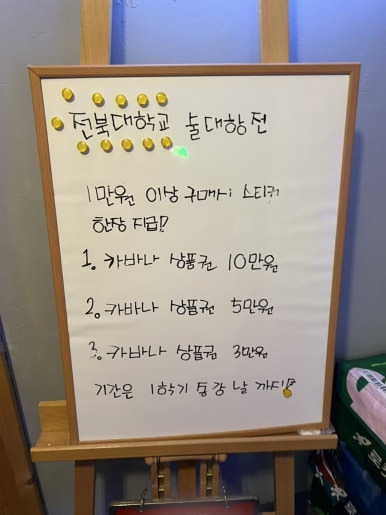 전북대학교 술대항전
1만원 이상 구매시 스티커
한장 지급!
1. 카바나 상품권 10만원
2. 카바나 상품권 5만원
3. 카바나 상품권 3만원
기간은 1학기 종강 날 까지!